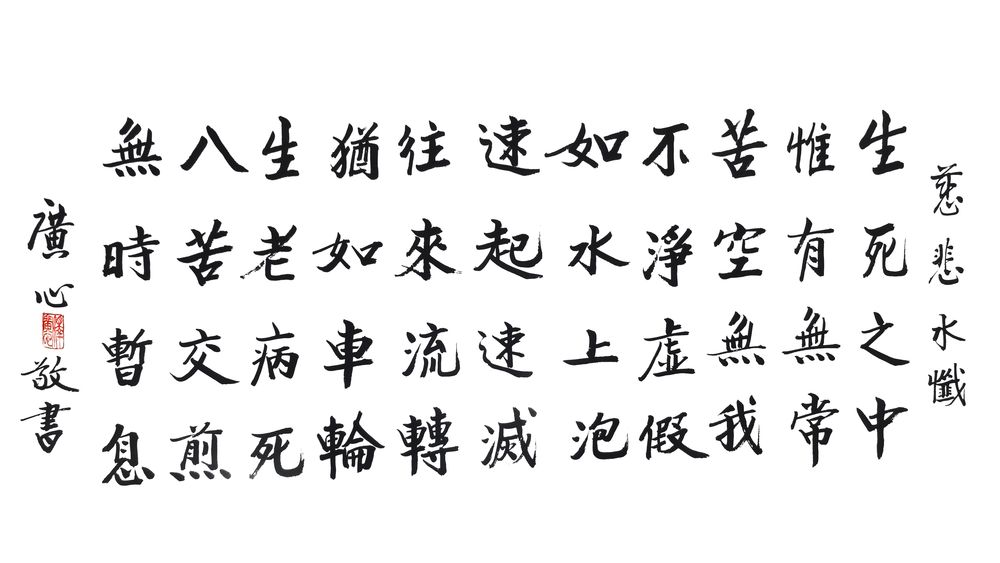 慈悲水懺
生死之中
惟有無常
苦空無我
不淨虛假
如水上泡
速起速滅
往來流轉
猶如車輪
生老病死
八苦交煎
無時暫息
廣心敬書